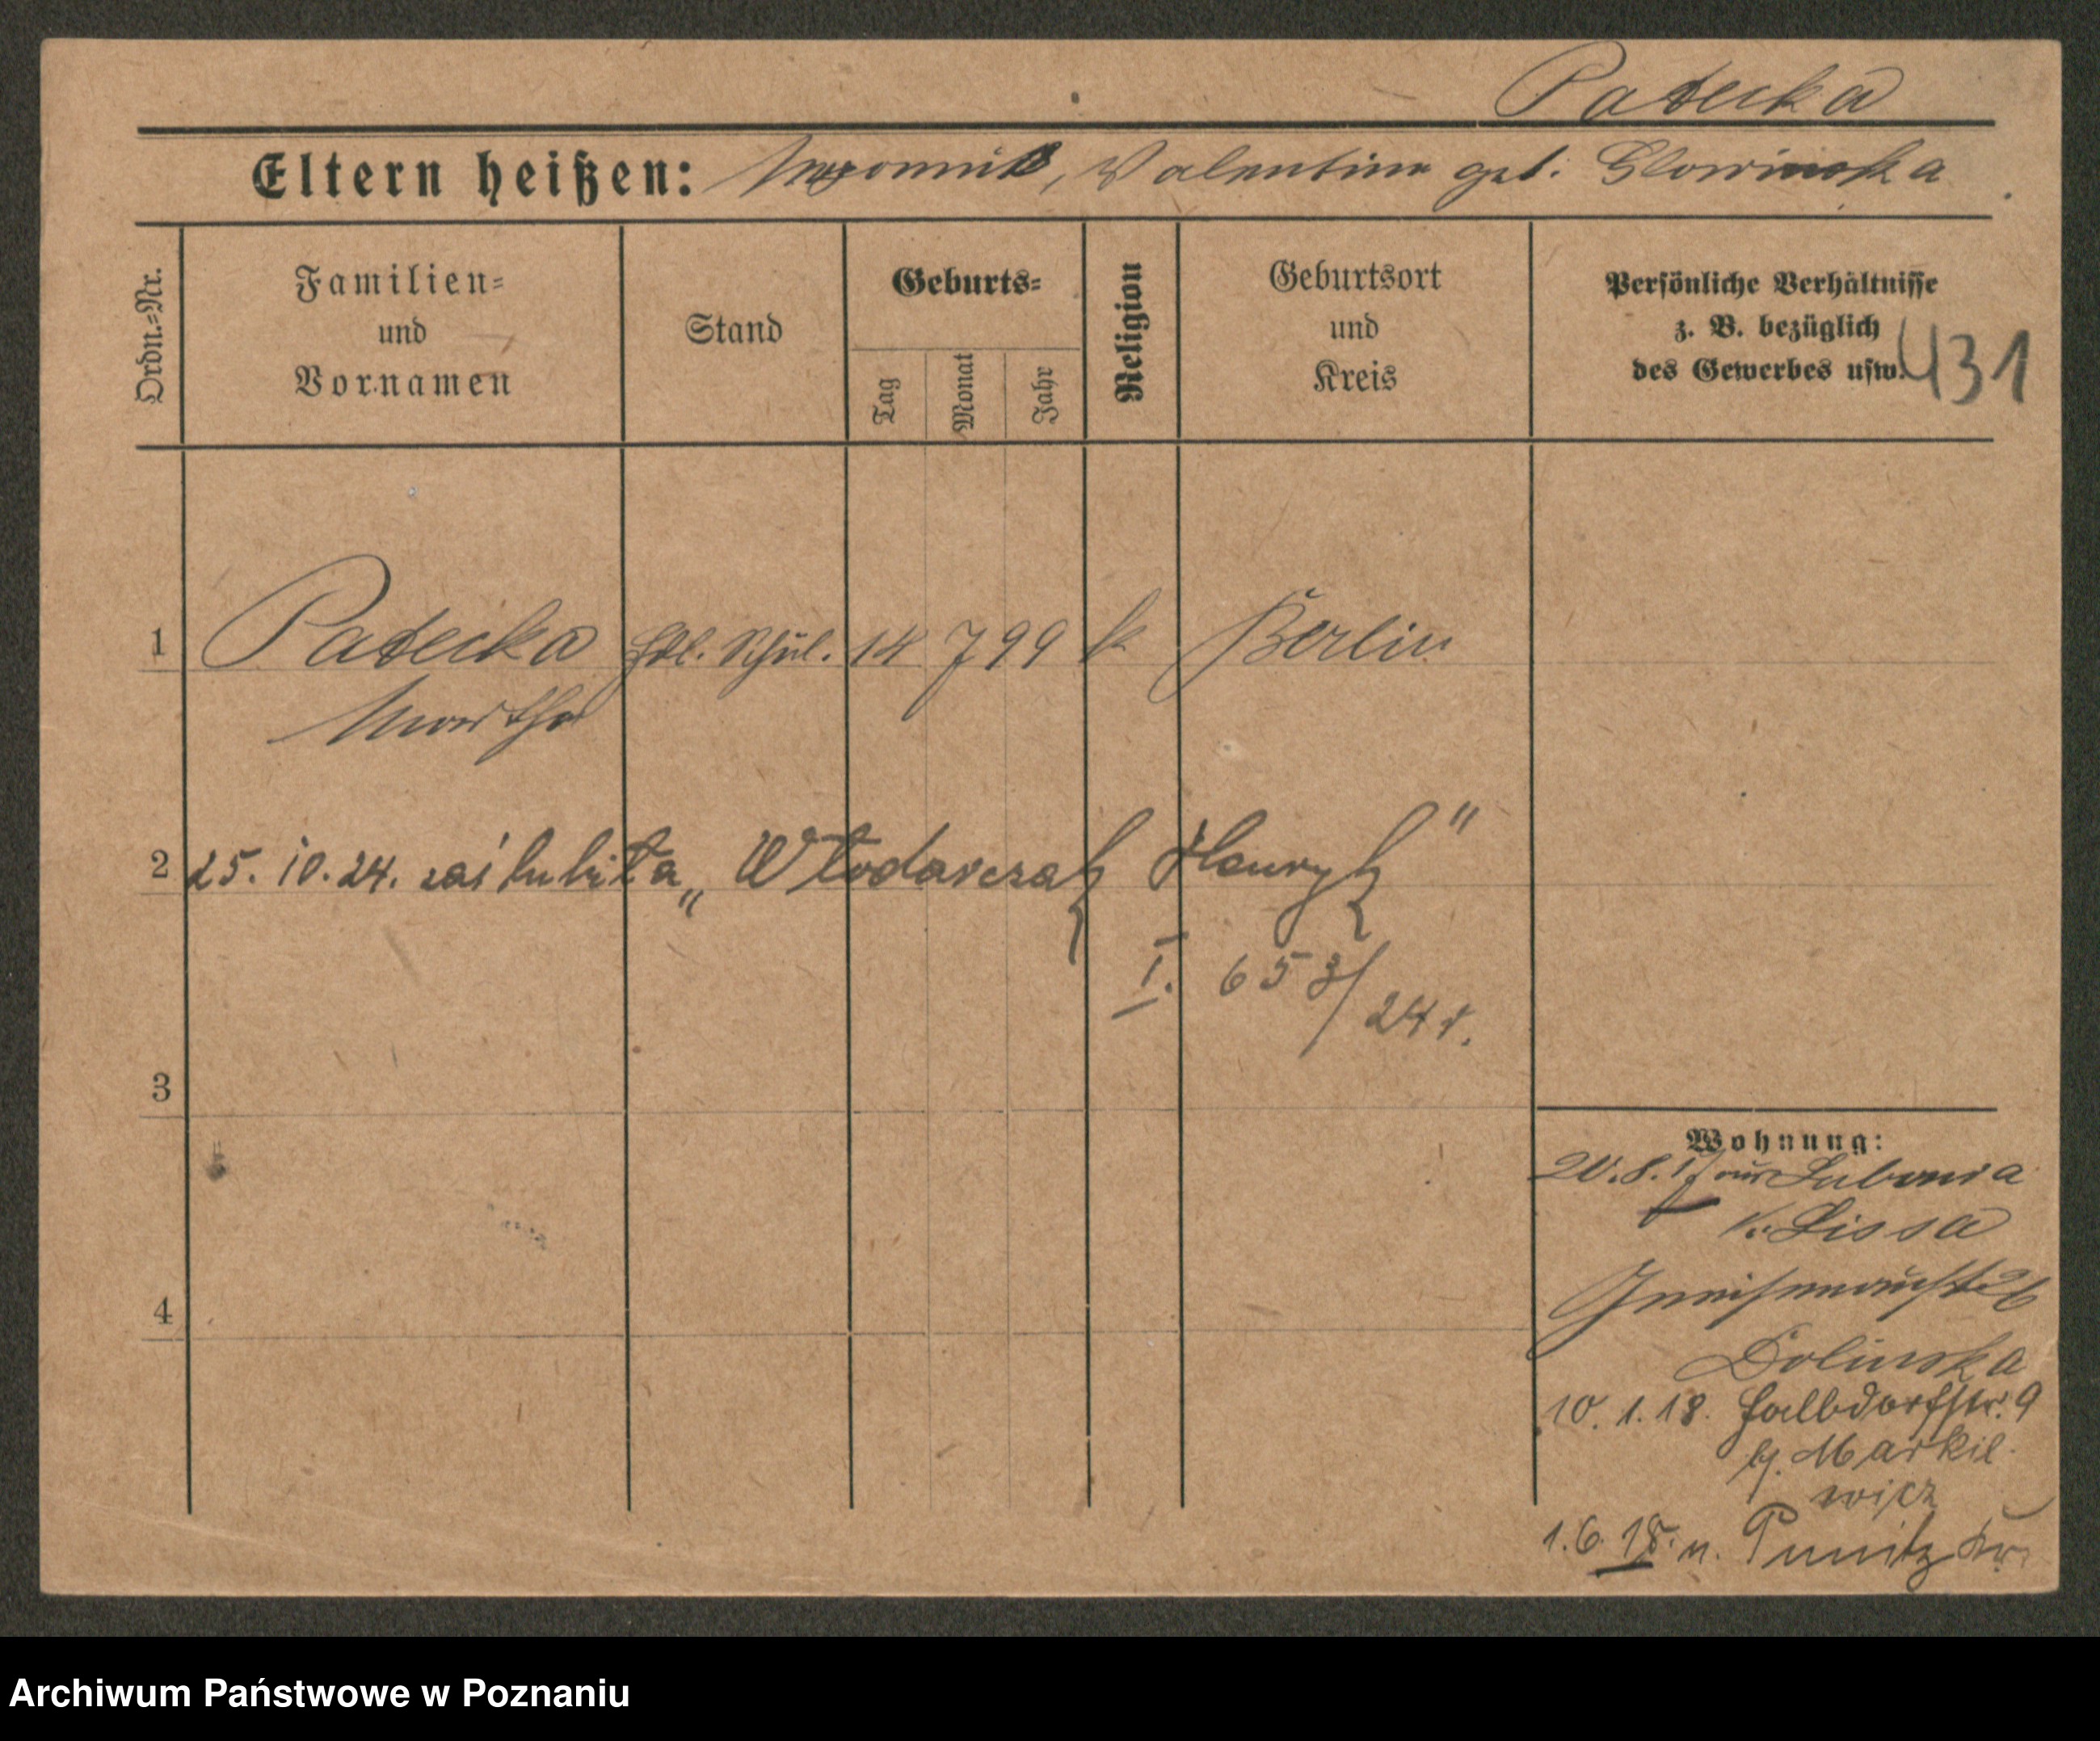 Patecka
Eltern heißen: Valentine geb. Glowinska
Ordn.=Nr.
Familien=
und
Vornamen
Stand
Geburts=
Tag
Monat
Jahr
Religion
Geburtsort
und
Kreis
Persönliche Verhältnisse
z. B. bezüglich
des Gewerbes usw.
431
1 Patecka 14 7 99 k Berlin
Martha
2 25.10.24. zaślubiła „Włodarczak Henryk"
I. 653/24 r.
3
4
Wohnung:
aus Lubonia
K. Lissa
Gneisenaustr 26
Dolinska
10.1.18. Halbdorfstr. 9
b. Markie
wicz
1.6.18. n. Punitz
Archiwum Państwowe w Poznaniu